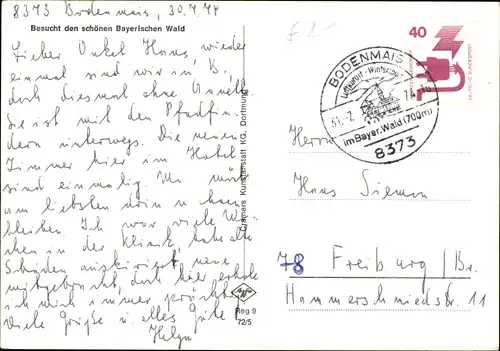 8373 Bodenmais, 30.7.74
Besucht den schönen Bayerischen Wald
Lieber Onkel Hans, wieder
einmal sind wir in B.,
doch diesmal ohne Annette
Sie ist mit den Pfadfin-
dern unterwegs. Die neuen
Zimmer hier im Hotel
sind einmalig. Man möcht
am liebsten drin
bleiben. Ich war viele Wo-
chen in der Klinik, habe alte
Schäden auskuriert, neue
mitgebracht, doch hier erhole
ich mich immer prächtig
Viele Grüße u alles Gute
Helga
Cramers Kunstanstalt KG, Dortmund
Reg 9
72/5
£ 2-
40
DEUTSCHE BUNDESPOST
BODENMAIS
Luftkurort - Wintersport
31.-7. 74-10
im Bayer. Wald (700m)
8373
Herrn
Hans Siemen
78 Freiburg/Br.
Hammerschmiedstr. 11